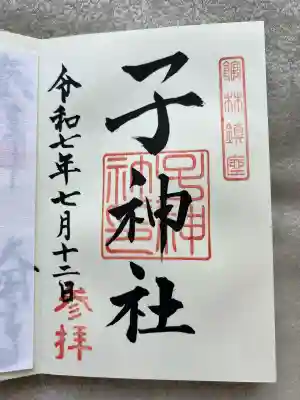 子神社
子神
社印
令和七年七月十二日
参拝